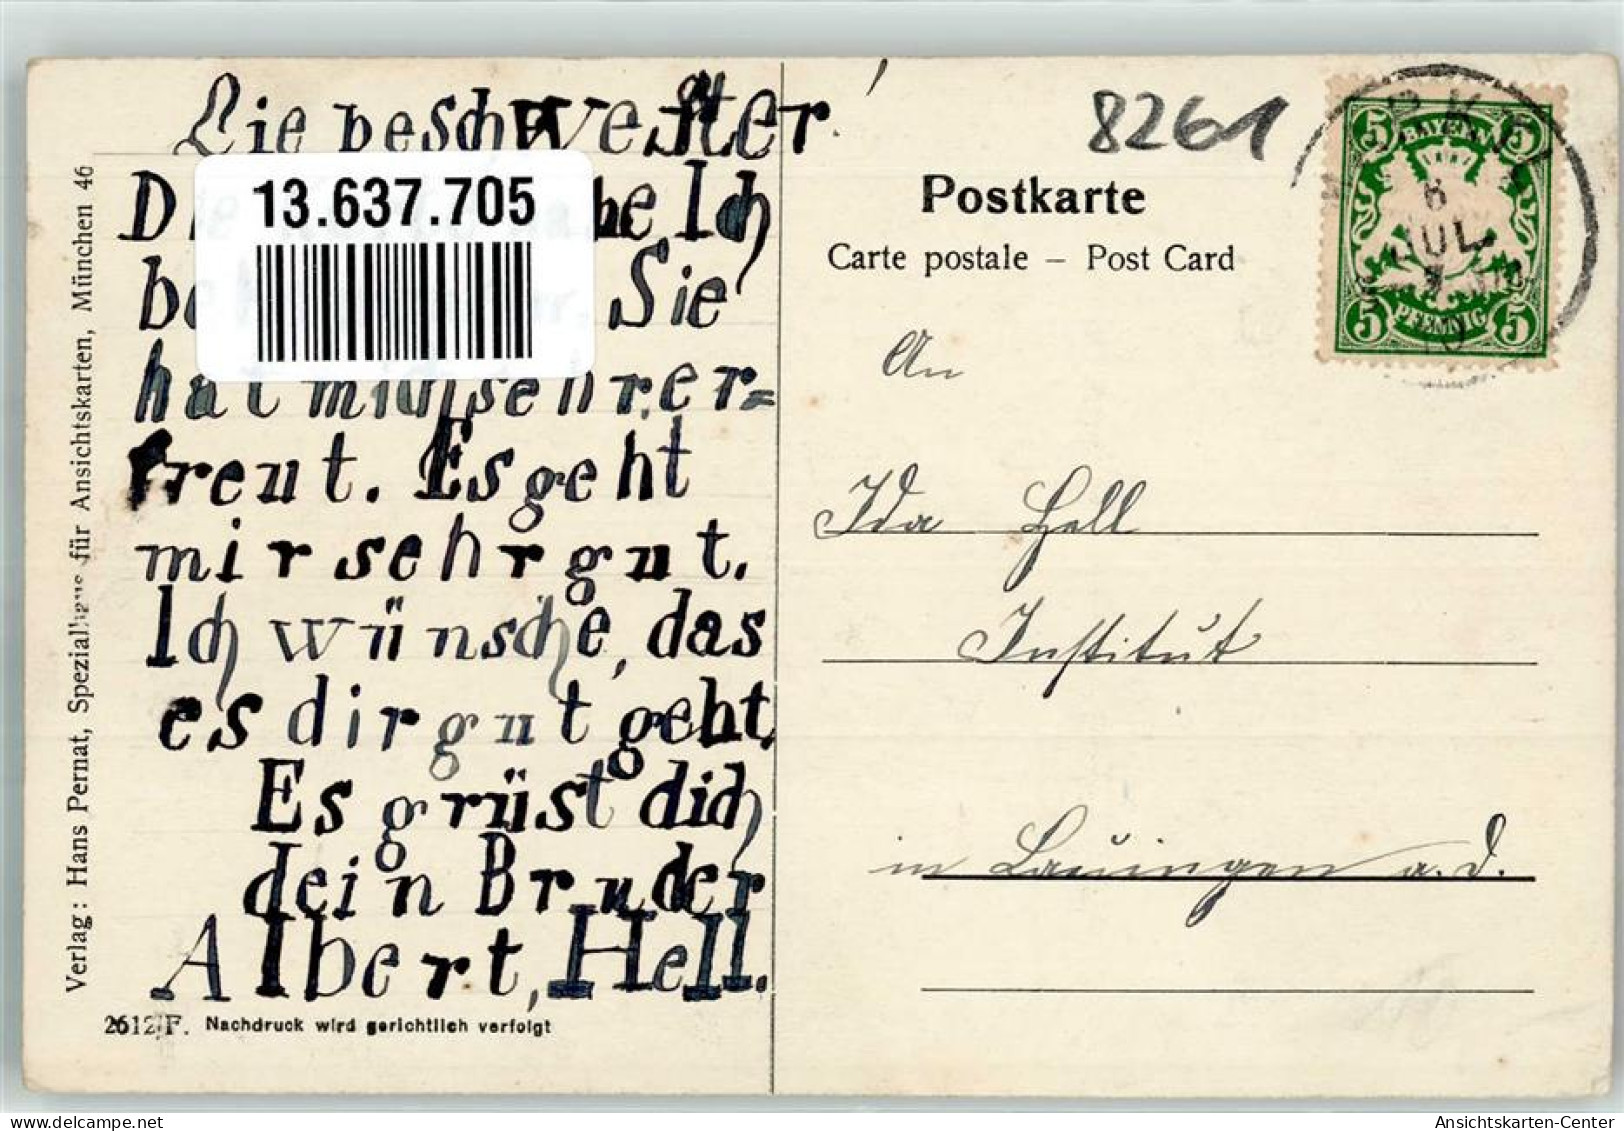 Lie be schwester!
Ich
Sie
hat mich sehr er=
freut. Es geht
mir sehr gut.
Ich wünsche, das
es dir gut geht.
Es grüst dich
dein Bruder
Albert, Hell.
13.637.705
Verlag: Hans Pernat, für Ansichtskarten, München 46
2612/F. Nachdruck wird gerichtlich verfolgt
8261
Postkarte
Carte postale – Post Card
5 BAYERN 5
5 PFENNIG 5
8
JUL
An
Ida Hell
Institut
in Lauingen a. d.
Ansichtskarten-Center